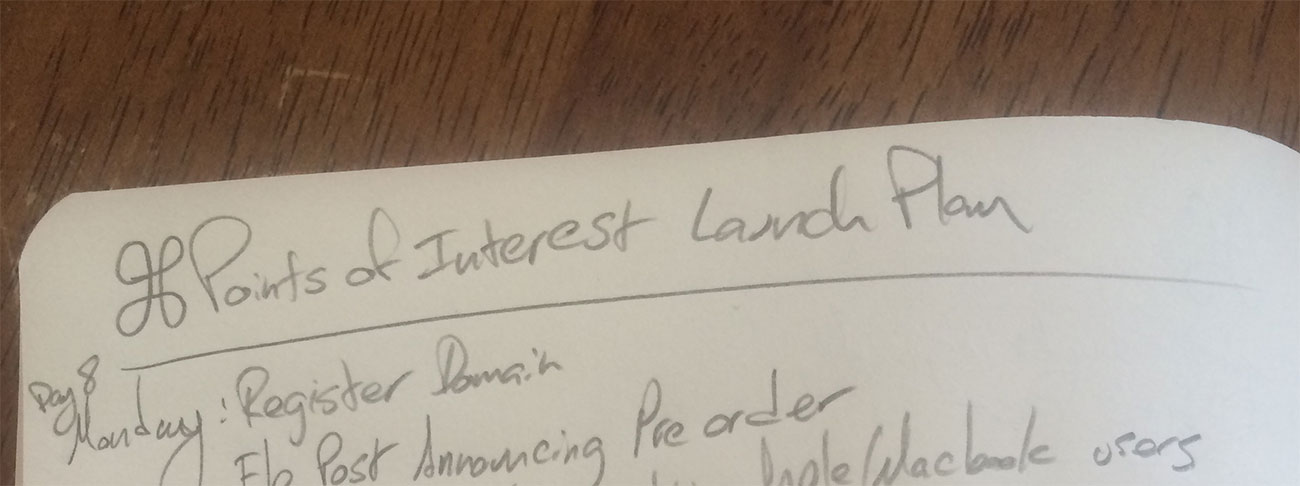 ⌘ Points of Interest Launch Plan
Day 8
Monday: Register Domain
Fb Post Announcing Pre order
Apple/Macbook users